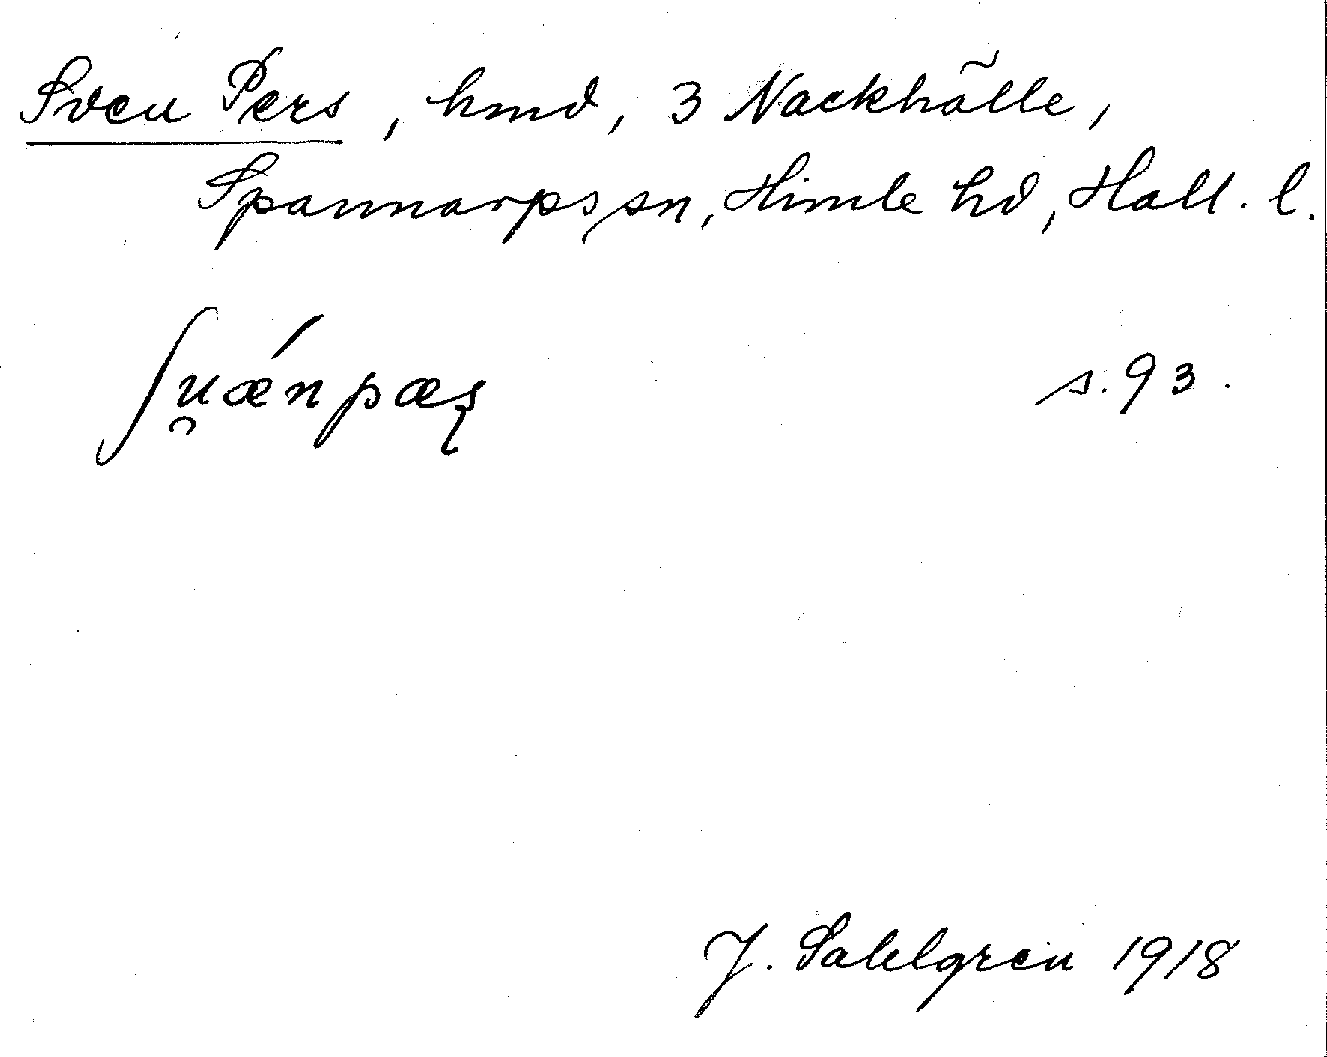 Sven Pers, hmd, 3 Nackhälle,
Spannarps sn, Himle hd, Hall. l.
ʃu̯ǽnpæʂ s. 93.
J. Sahlgren 1918